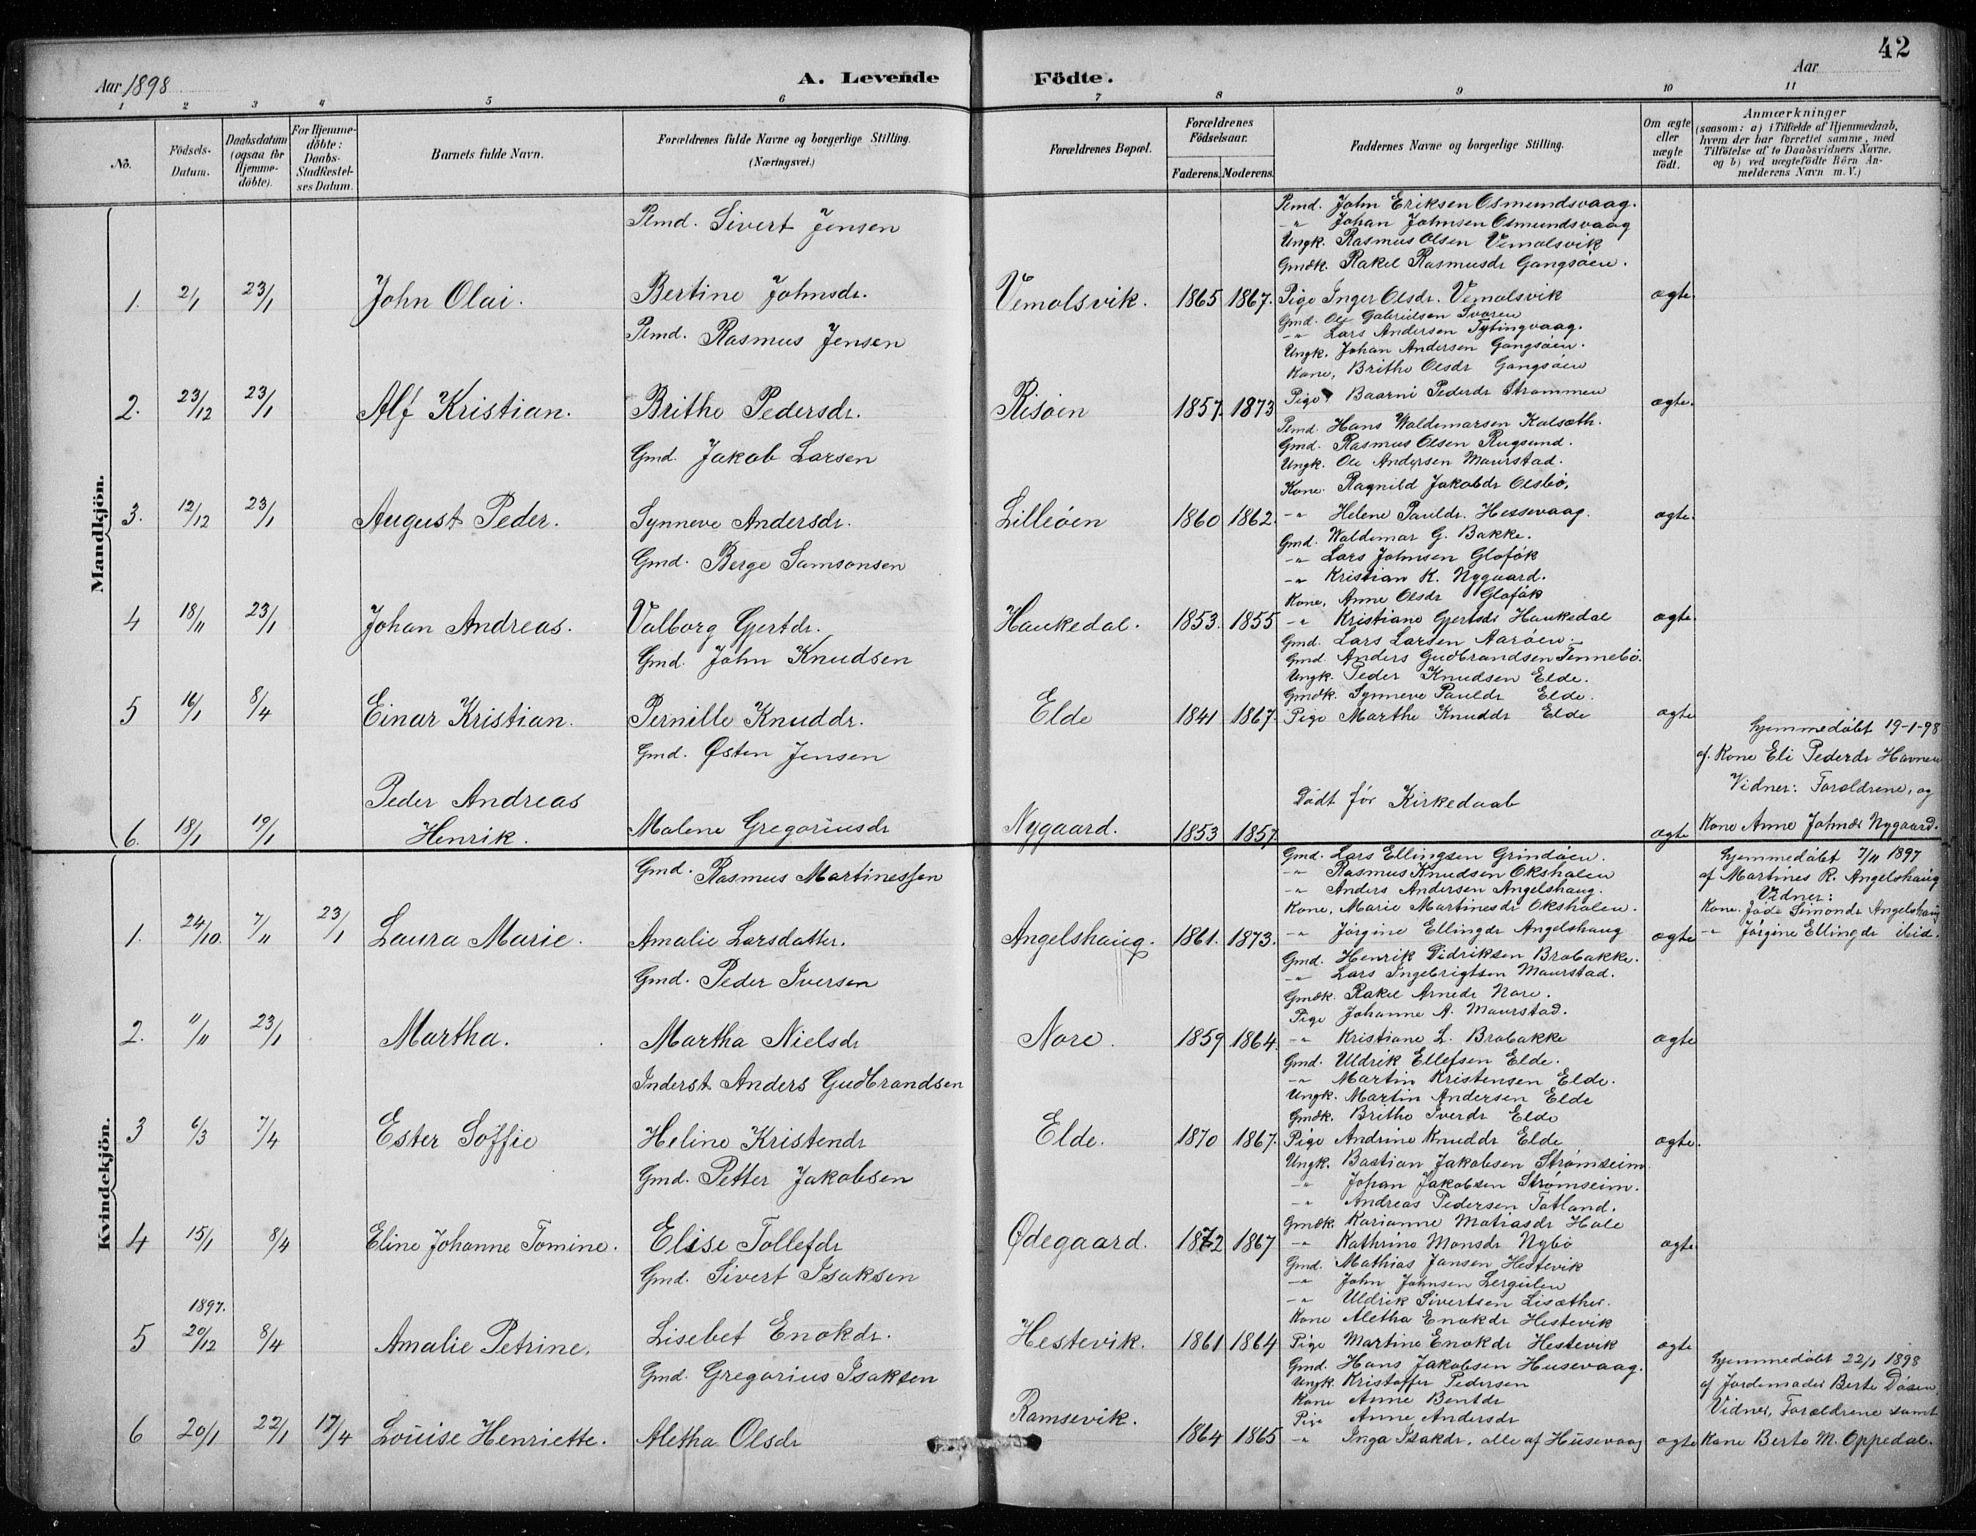 42
Aar 1898
A. Levende Födte.
Aar
1 2 3 4 5 6 7 8 9 10 11
No.
Födsels-Datum.
Daabsdatum (ogsaa for Hjemme-döbte).
For Hjemme-döbte: Daabs-Stadfæstel-ses Datum.
Barnets fulde Navn.
Forældrenes fulde Navne og borgerlige Stilling. (Næringsvei.)
Forældrenes Bopæl.
Forældrenes Födselsaar.
Faderens. Moderens.
Faddernes Navne og borgerlige Stilling.
Om ægte eller uægte födt.
Anmærkninger (saasom: a) i Tilfælde af Hjemmedaab, hvem der har forrettet samme, med Tilföielse af to Daabsvidners Navne, og b) ved uægtefödte Börn An-melderens Navn m. V.)
Mandkjön.
1. 2/1 23/1 John Olai.
Pmd. Sivert Jensen
Bertine Johnsdr.
Vemolsvik. 1865 1867.
Pmd. John Eriksen Osmundsvaag.
-"- Johan Johnsen Osmundsvaag
Ungk. Rasmus Olsen Vemolsvik
Gmdk. Rakel Rasmusdr Gangsøen.
Pige Inger Olsdr. Vemolsvik
ægte.
2. 23/12 23/1 Alf Kristian.
Pmd. Rasmus Jensen
Brithe Pedersdr.
Risøen 1857. 1873
Gmd. Ole Gabrielsen Ivaren
-"- Lars Andersen Tytingvaag.
Ungk. Johan Andersen Gangsøen.
Kone, Brithe Olsdr Gangsøen
Pige Baarni Pederdr Strømmen
ægte.
3. 12/12 23/1 August Peder.
Gmd. Jakob Larsen
Synneve Andersdr.
Lilleøen 1860 1862.
Pmd. Hans Waldemarsen Kalsæth.
Gmd. Rasmus Olsen Rugsund.
Ungk. Ole Andersen Maurstad.
Kone. Ragnild Jakobdr Olsbø,
-"- Helene Pauldr. Hessevaag.
ægte.
4 18/11 23/1 Johan Andreas.
Gmd. Berge Samsonsen
Valborg Gjertdr.
Haukedal. 1853. 1855
Gmd. Waldemar G. Bakke.
-"- Lars Johnsen Glofòk
-"- Kristian K. Nygaard.
Kone, Anne Olsdr Glofòk
-"- Kristiane Gjertsdr Haukedal
ægte.
5 16/1 8/4 Einar Kristian.
Gmd. John Knudsen
Pernille Knuddr.
Elde 1841 1867.
Gmd. Lars Larsen Aarøen
Gmd. Anders Gudbrandsen Tennebø.
Ungk. Peder Knudsen Elde.
Gmdk. Synneve Pauldr Elde.
Pige Marthe Knuddr Elde
ægte
6. 18/1 19/1 Peder Andreas
Henrik.
Gmd. Østen Jensen
Malene Gregoriusdr
Nygaard. 1853 1857
Dødt før Kirkedaab
ægte
hjemmedøbt 19-1-98
af Kone Eli Pederdr Havnen
Vidner: Forældrene, og
Kone Anne Johndr Nygaard.
Kvindekjön.
1. 24/10. 7/11 23/1 Laura Marie.
Gmd. Rasmus Martinessen
Amalie Larsdatter.
Angelshaug. 1861. 1873.
Gmd. Lars Ellingsen Grindøen.
-"- Rasmus Knudsen Oksholen
-"- Anders Andersen Angelshaug.
Kone, Marie Martinesdr Oksholen.
-"- Jørgine Ellingdr Angelshaug
ægte
hjemmedøbt 7/11 1897
af Martines R. Angelshaug
Vidner:
Kone. Jode Simondr Angelshaug
-"- Jørgine Ellingdr ibid.
2. 11/11 23/1 Martha.
Gmd. Peder Iversen
Martha Nielsdr
Nore. 1859 1864.
Gmd. Henrik Didriksen Brobakke.
-"- Lars Ingebrigtsen Maurstad.
Gmdk. Rakel Arnedr Nore.
Pige Johanne A. Maurstad.
-"- Kristiane L. Brobakke
ægte
3 6/3 7/4 Ester Soffie
Inderst Anders Gudbrandsen
Heline Kristendr
Elde. 1870 1867.
Gmd. Uldrik Ellefsen Elde.
-"- Martin Kristensen Elde.
Ungk. Martin Andersen Elde
Gmdk. Brithe Iverdr Elde
Pige Andrine Knuddr Elde
ægte.
4 15/1 8/4 Eline Johanne Tomine.
Gmd. Petter Jakobsen
Elise Tollefdr
Ødegaard. 1872 1867
Ungk. Bastian Jakobsen Strømseim.
-"- Johan Jakobsen Strømseim.
-"- Andreas Pedersen Totland.
Gmdk. Karianne Matiasdr Hole
-"- Kathrine Monsdr Nybø
ægte
5 1897. 20/12 8/4 Amalie Petrine.
Gmd. Sivert Isaksen
Lisebet Enokdr.
Hestevik. 1861 1864
Gmd. Mathias Jansen Hestevik
-"- John Johnsen Lergulen
-"- Uldrik Sivertsen Lisæther.
Kone Aletha Enokdr Hestevik
Pige Martine Enokdr Hestevik
ægte
6 20/1 22/1 17/4 Louise Henriette.
Gmd. Gregorius Isaksen
Aletha Olsdr
Ramsevik. 1864 1865
Gmd. Hans Jakobsen Husevaag.
Ungk. Kristoffer Pedersen
Kone Anne Bentdr
Pige Anne Andersdr
-"- Inga Isakdr. alle af Husevaag
ægte
hjemmedøbt 22/1 1898
af Jordemoder Berte Døsen
Vidner, Forældrene samt
Kone Berte M. Oppedal.